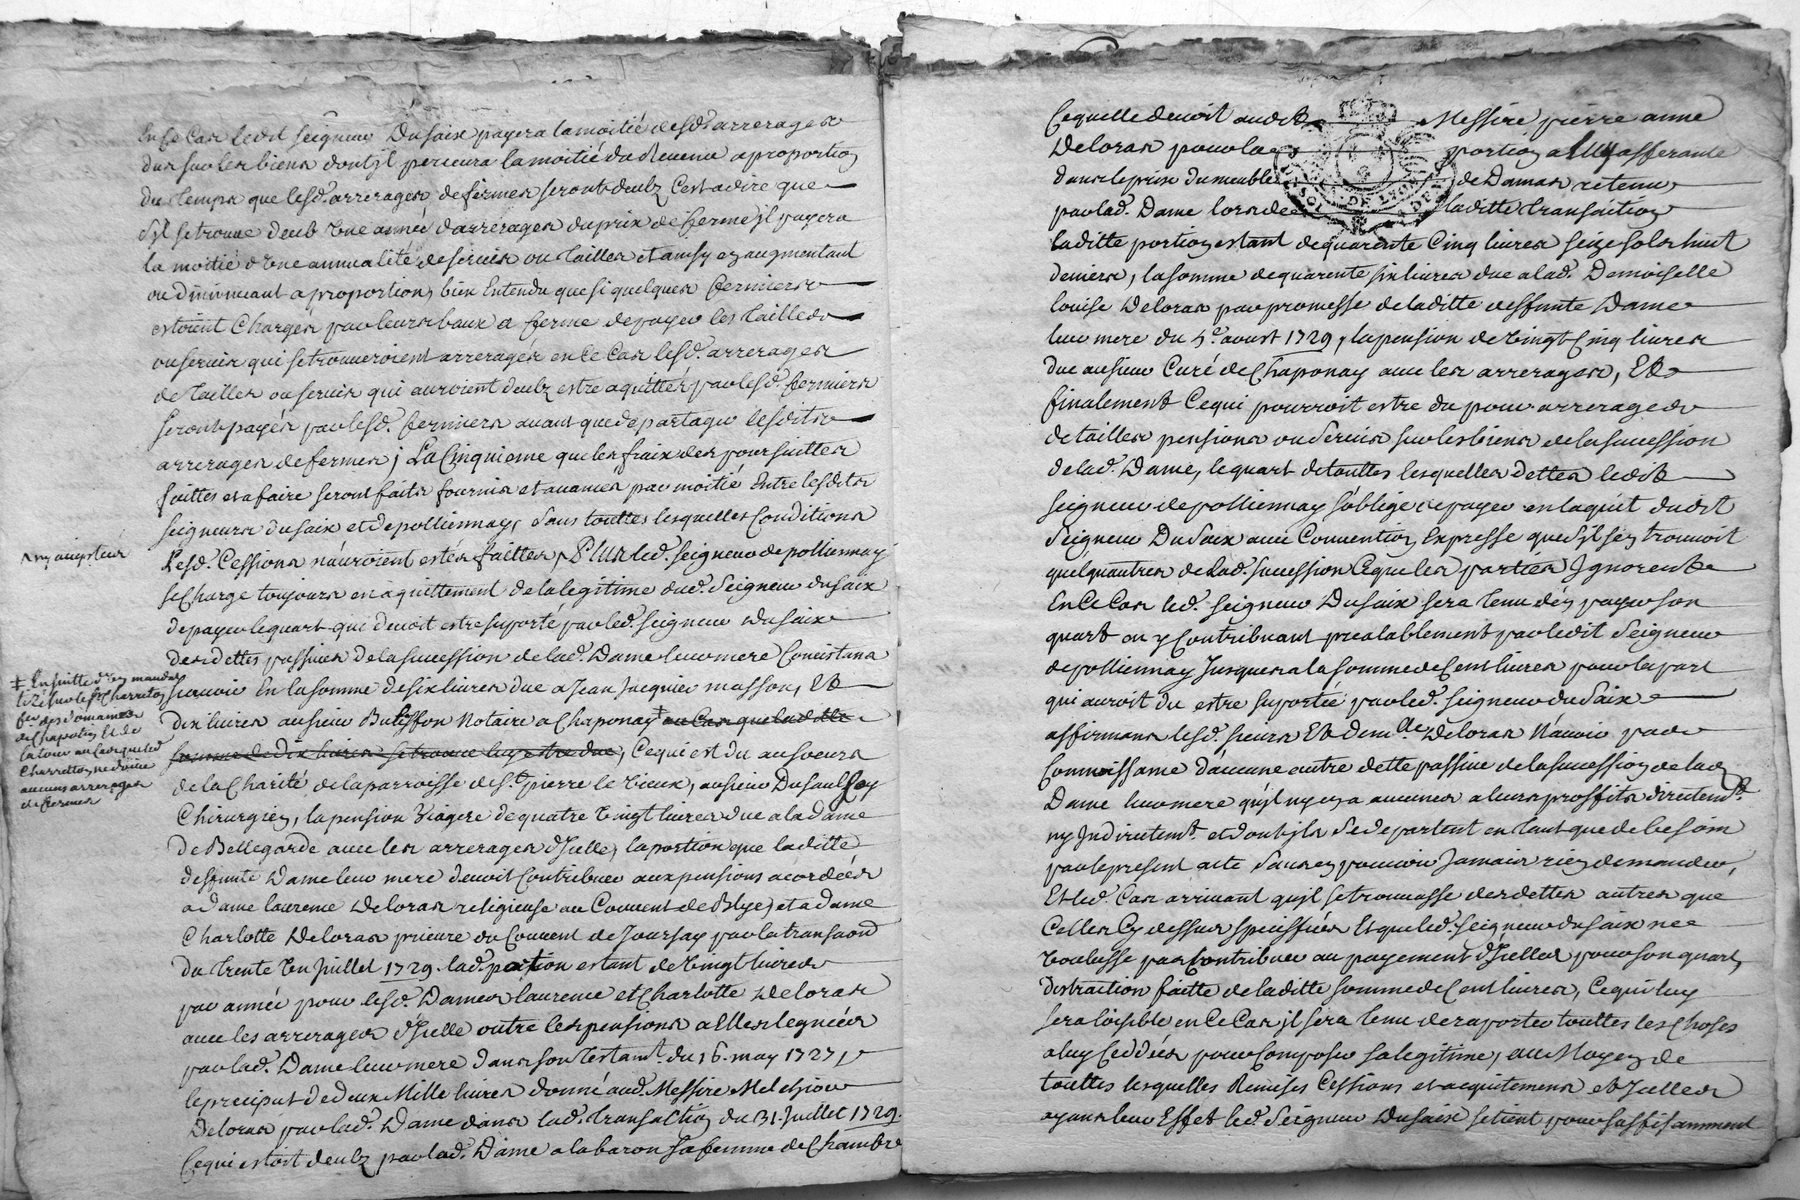 En ce cas ledit seigneur Dusaix payera la moitié desd. arrerages
dus sur les biens dont il percevra la moitié du Revenu a proportion
du temps que lesd. arrerages de fermes seront deubz C'est a dire que
s'il se trouve deub une année d'arrerages du prix de ferme il payera
la moitié d'une annualité de servis ou tailles et ainsy en augmentant
ou diminuant a proportion, bien Entendu que si quelques fermiers
estoient Chargés par leurs baux a ferme de payer les tailles
ou servis qui se trouveroient arreragés en ce Cas lesd. arrerages
de tailles ou servis qui auroient deubz estre aquittés par lesd. fermiers
seront payés par lesd. fermiers avant que de partager lesdits
arrerages de fermes; La Cinquieme que les fraix des poursuittes
faittes et a faire seront faits fournis et avancés par moitié Entre lesdits
seigneurs dusaix et de polliennay, sans touttes lesquelles Conditions
Lesd. Cessions n'auroient estés faittes, Plus led. seigneur de polliennay
se Charge toujours en aquittement de la legitime dud. Seigneur dusaix
de payer le quart qui devoit estre suporté par led. seigneur dusaix
des dettes passives de la succession de lad. Dame leur mere Concistans
scavoir En la somme de six livres due a Jean Jacquier masson, Et
dix livres au sieur Butiffon Notaire a Chaponay ‡ au Cas que ladite
somme de dix livres se trouve luy estre due, Ce qui est du au soeurs
de la Charité de la parroisse de St. pierre le vieux, au sieur Dusaulsey
Chirurgien, la pension Viagere de quatre vingt livres due a la dame
de Bellegarde avec les arrerages d'Icelle, la portion que laditte
deffunte Dame leur mere devoit Contribuer aux pensions acordées
a dame laurence Deloras religieuse au Couvent de Blye, et a dame
Charlotte Deloras prieure du Couvent de Joursay par la transaon
du trente un Juillet 1729. lad. portion estant de vingt livres
par année pour lesd. Dames laurence et Charlotte Deloras
avec les arrerages d'Icelle outre les pensions a Elles leguées
par lad. Dame leur mere dans son testamt. du 16. may 1727,
le preciput de deux Mille livres donné aud. Messire Melchior
Deloras par lad. Dame dans lad. transaction du 31. Juillet 1729.
Ce qui estoit deubz par lad. Dame a la baron sa femme de Chambre
‡ En suitte d'un mandat
tiré sur le Sr Charreton
fer des domaines
de Chapotin Et de
la tour au Cas que led
Charreton ne doive
aucuns arrerages
de fermes
Ce quelle devoit audit Messire pierre anne
Deloras pour la portion a luy afferante
dans le prix du meuble de Damas retenu
par lad. Dame lors de laditte transaction
laditte portion estant de quarente Cinq livres seize sols huit
deniers, la somme de quarente six livres due a lad. Demoiselle
louise Deloras par promesse de laditte deffunte Dame
leur mere du 4e. aoust 1729, la pension de vingt Cinq livres
due au sieur Curé de Chaponay avec les arrerages, Et
finalement Ce qui pourroit estre du pour arrerages
de tailles pensions ou Servis sur les biens de la succession
de lad. Dame, le quart de touttes lesquelles dettes ledit
seigneur de polliennay s'oblige de payer en l'aquit dudit
Seigneur Dusaix avec Convention Expresse que s'il s'en trouvoit
quelqu'autres de Lad. succession Ce que les parties Ignorent
En Ce Cas led. seigneur Dusaix sera tenu d'en payer son
quart en y Contribuant prealablement par ledit Seigneur
de polliennay Jusques a la somme de Cent livres pour la part
qui auroit du estre suportée par led. seigneur du Saix
affirmans lesd. sieurs Et demlle Deloras N'avoir pas
Connoissance d'aucune autre dette passive de la succession de lad
Dame leur mere qu'il n'y en a aucunes a leurs proffits directemt.
ny Indirectemt. et dont ils se departent en tant que de besoin
par le present acte sans en pouvoir Jamais rien demander,
Et led. Cas arrivant qu'il se trouvasse des dettes autres que
Celles Cy dessus speciffiées Et que led. seigneur du saix ne
voulusse pas Contribuer au payement d'Icelles pour son quart,
distraction faitte de laditte somme de Cent livres, Ce qui luy
sera loisible en Ce Cas, il sera tenu de raporter touttes les Choses
a luy Ceddées pour Composer sa legitime, au Moyen de
touttes lesquelles Remises Cessions et acquitemens et Icelles
ayans leur Effet led. Seigneur Dusaix se tient pour suffisamment